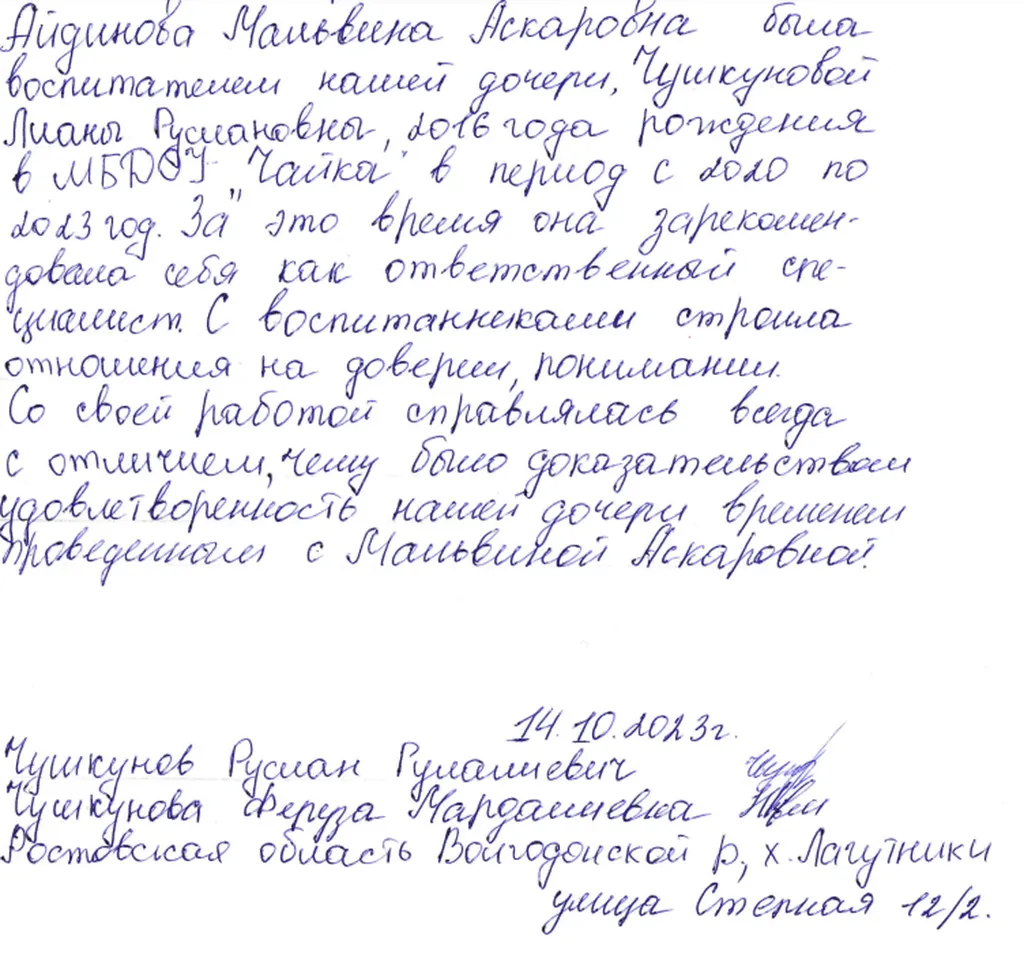 Айдинова Мальвина Аскаровна была
воспитателем нашей дочери, Чушкуновой
Лианы Руслановны, 2016 года рождения
в МБДОУ "Чайка" в период с 2020 по
2023 год. За это время она зарекомен-
довала себя как ответственный спе-
циалист. С воспитанниками строила
отношения на доверии, понимании.
Со своей работой справлялась всегда
с отличием, чему было доказательством
удовлетворенность нашей дочери временем
проведенным с Мальвиной Аскаровной.
14.10.2023г.
Чушкунов Руслан Гулалиевич
Чушкунова Феруза Мардалиевна
Ростовская область Волгодонской р, х. Лагутники
улица Степная 12/2.